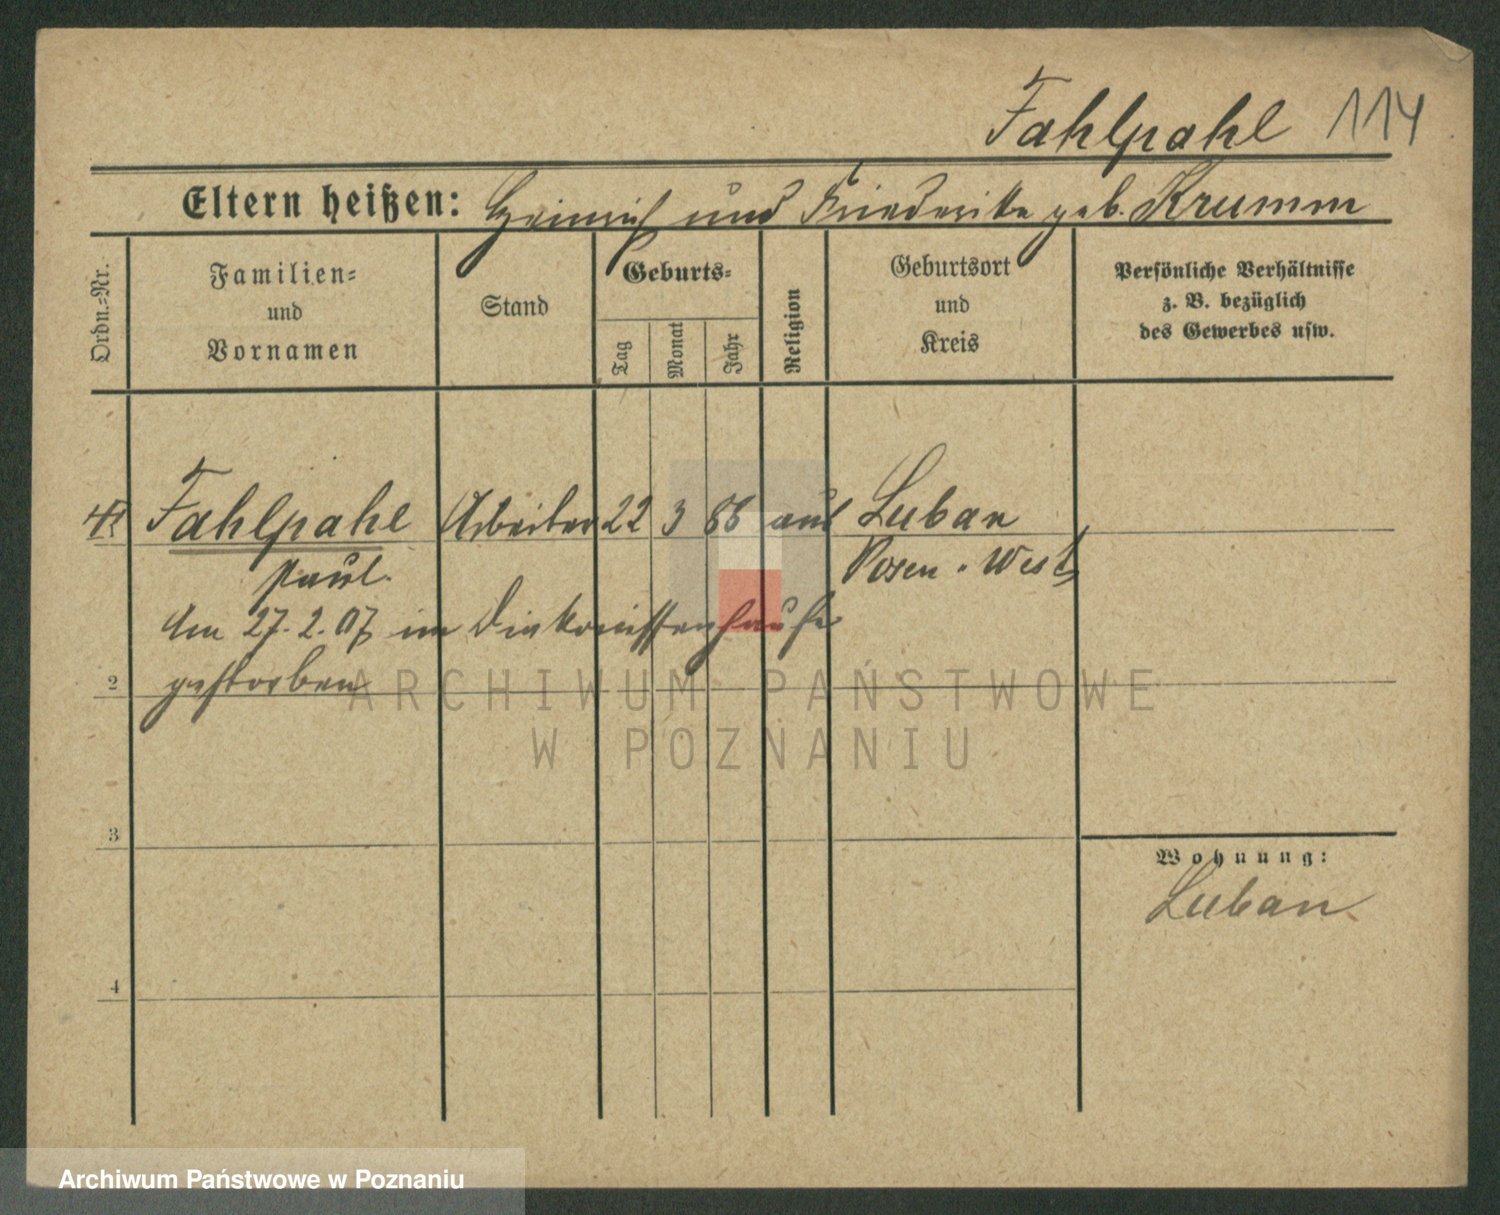 Fahlpahl 114
Eltern heißen: Heinrich und Friederike geb. Krumm
Ordn.-Nr.
Familien-
und
Vornamen
Stand
Geburts-
Tag
Monat
Jahr
Religion
Geburtsort
und
Kreis
Persönliche Verhältnisse
z. B. bezüglich
des Gewerbes usw.
Fahlpahl Arbeiter 22 3 86 Luban
Paul. Posen-West
Am 27.2.07 im Diakonissenhause
gestorben
2
3
4
Wohnung:
Luban
ARCHIWUM PAŃSTWOWE
W POZNANIU
Archiwum Państwowe w Poznaniu